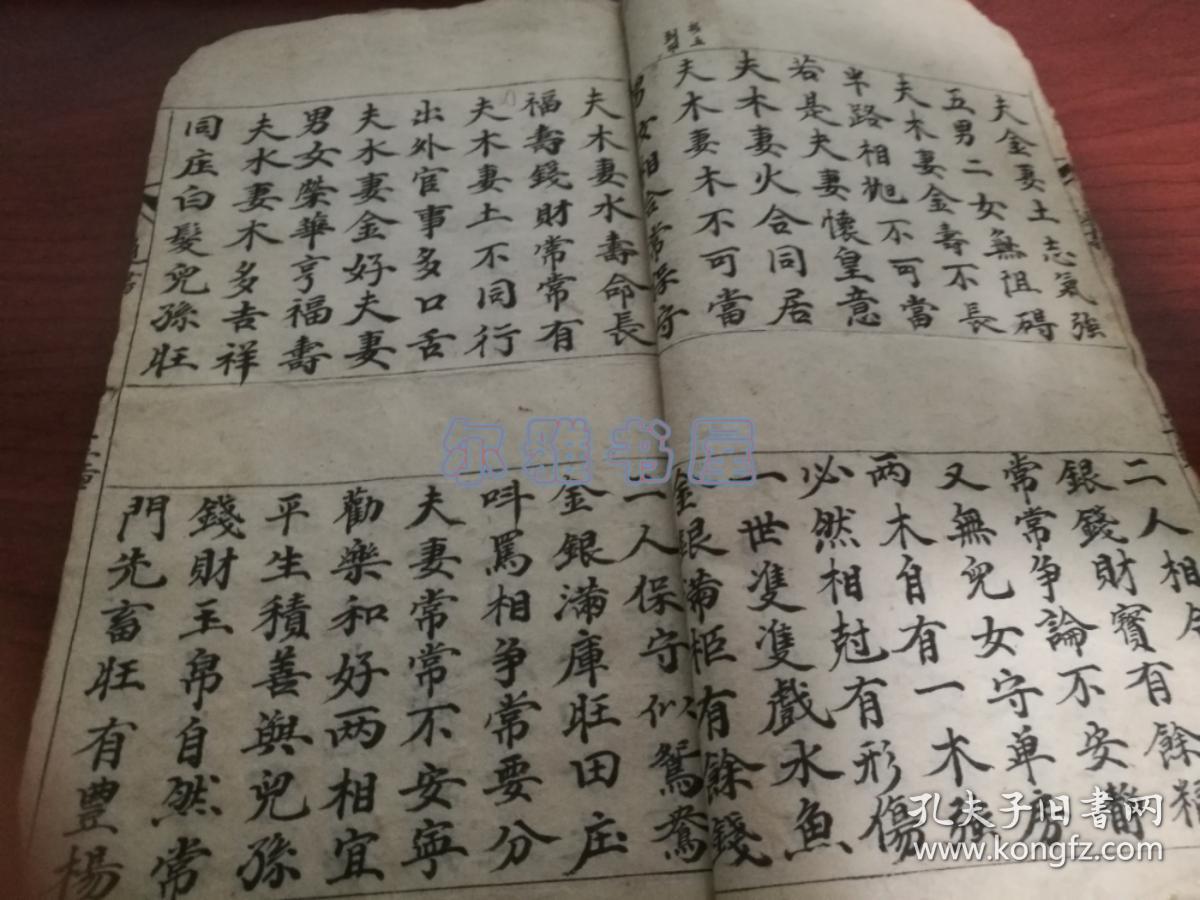 夫金妻土志氣強
五男二女無阻碍
夫木妻金壽不長
半路相抛不可當
若是夫妻懷皇意
夫木妻火合同居
夫木妻木不可當
男女相合常守
夫木妻水壽命長
福壽錢財常常有
夫木妻土不同行
出外官事多口舌
夫水妻金好夫妻
男女榮華亨福壽
夫水妻木多吉祥
同庄白髮兒孫旺
二人相合
銀錢財寶有餘糧
常常争論不安靜
又無兒女守单房
两木自有一木強
必然相尅有形傷
一世隻隻戲水魚
金銀滿柜有餘錢
二人保守似鴛鴦
金銀滿庫旺田庄
呌罵相争常要分
夫妻常常不安寧
勸樂和好两相宜
平生積善與兒孫
錢財玉帛自然常
門先畜旺有豊楊
尔雅书屋
孔夫子旧书网
www.kongfz.com